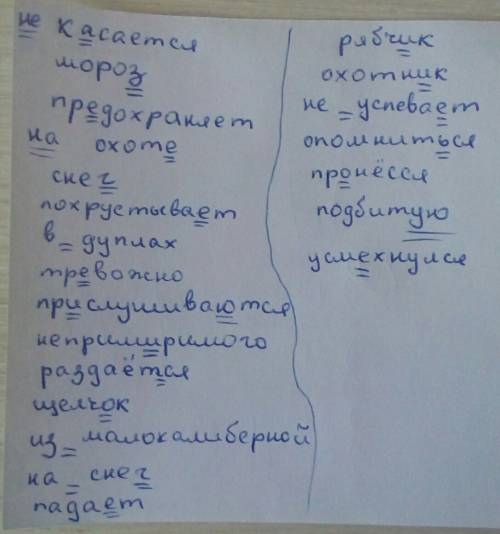 не касается
мороз
предохраняет
на охоте
снег
похрустывает
в дуплах
тревожно
прислушиваются
непримиримого
раздаётся
щелчок
из малокалиберной
на снег
падает
рябчик
охотник
не успевает
опомниться
пронёсся
подбитую
усмехнулся